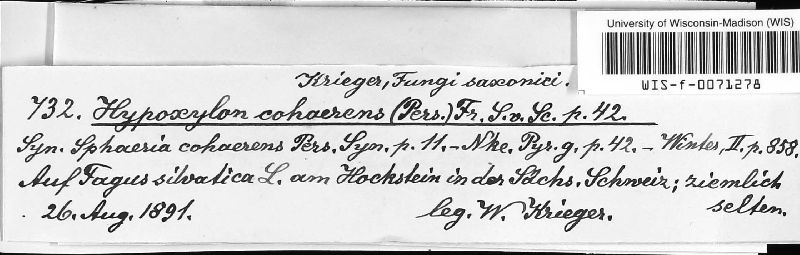 University of Wisconsin-Madison (WIS)
WIS-f-0071278
Krieger, Fungi saxonici.
732. Hypoxylon cohaerens (Pers.) Fr. S. v. Sc. p. 42.
Syn. Sphaeria cohaerens Pers. Syn. p. 11. - Nke. Pyr. g. p. 42. - Winter, II. p. 858.
Auf Fagus silvatica L. am Hockstein in der Sächs. Schweiz; ziemlich
selten.
26. Aug. 1891. leg. W. Krieger.